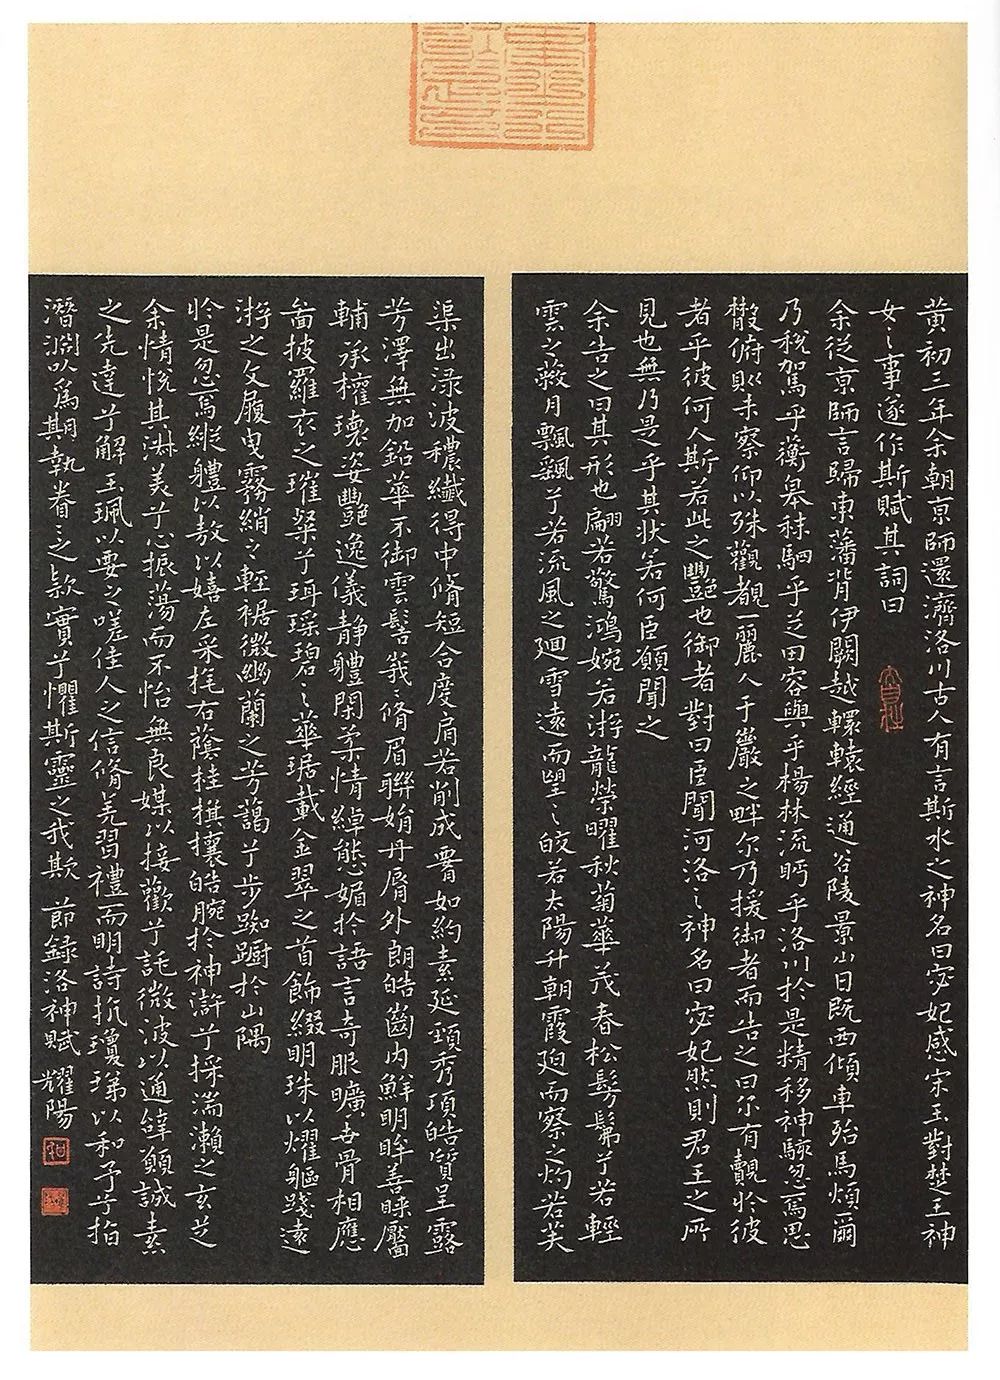 黃初三年余朝京師還濟洛川古人有言斯水之神名曰宓妃感宋玉對楚王神
女之事遂作斯賦其詞曰
余從京師言歸東藩背伊闕越轘轅經通谷陵景山日既西傾車殆馬煩爾
乃稅駕乎蘅皋秣駟乎芝田容與乎楊林流眄乎洛川於是精移神駭忽焉思
散俯則未察仰以殊觀覩一麗人于巖之畔尔乃援御者而告之曰尔有覿於彼
者乎彼何人斯若此之豔也御者對曰臣聞河洛之神名曰宓妃然則君王之所
見也無乃是乎其狀若何臣願聞之
余告之曰其形也翩若驚鴻婉若游龍榮曜秋菊華茂春松髣髴兮若輕
雲之蔽月飄颻兮若流風之廻雪遠而望之皎若太陽升朝霞廹而察之灼若芙
渠出渌波穠纖得中脩短合度肩若削成𦝫如約素延頸秀項皓質呈露
芳澤無加鉛華不御雲髻峩〻脩眉聯娟丹脣外朗皓齒内鮮明眸善睞靨
輔承權瓌姿豔逸儀静體閑柔情綽態媚於語言奇服曠世骨相應
啚披羅衣之璀粲兮珥瑶碧之華琚戴金翠之首飾綴明珠以燿軀踐遠
游之文履曳霧綃之輕裾微幽蘭之芳藹兮步踟蹰於山隅
於是忽焉縱體以敖以嬉左采旄右蔭桂旗攘皓腕於神滸兮採湍瀨之玄芝
余情悅其淑美兮心振蕩而不怡無良媒以接歡兮託微波以通辭願誠素
之先達兮解玉珮以要之嗟佳人之信脩羌習禮而明詩抗瓊珶以和予兮指
潛淵以爲期執眷〻之款實兮懼斯靈之我欺 節録洛神賦 耀陽